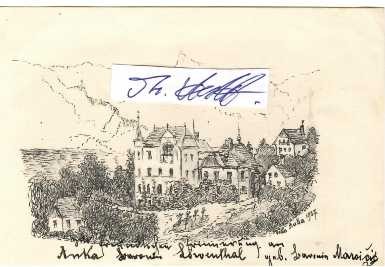 Th.
Anka 1927
freundlichen Erinnerung an
Anka Baronin Löwenthal geb. Baronin Maroičić